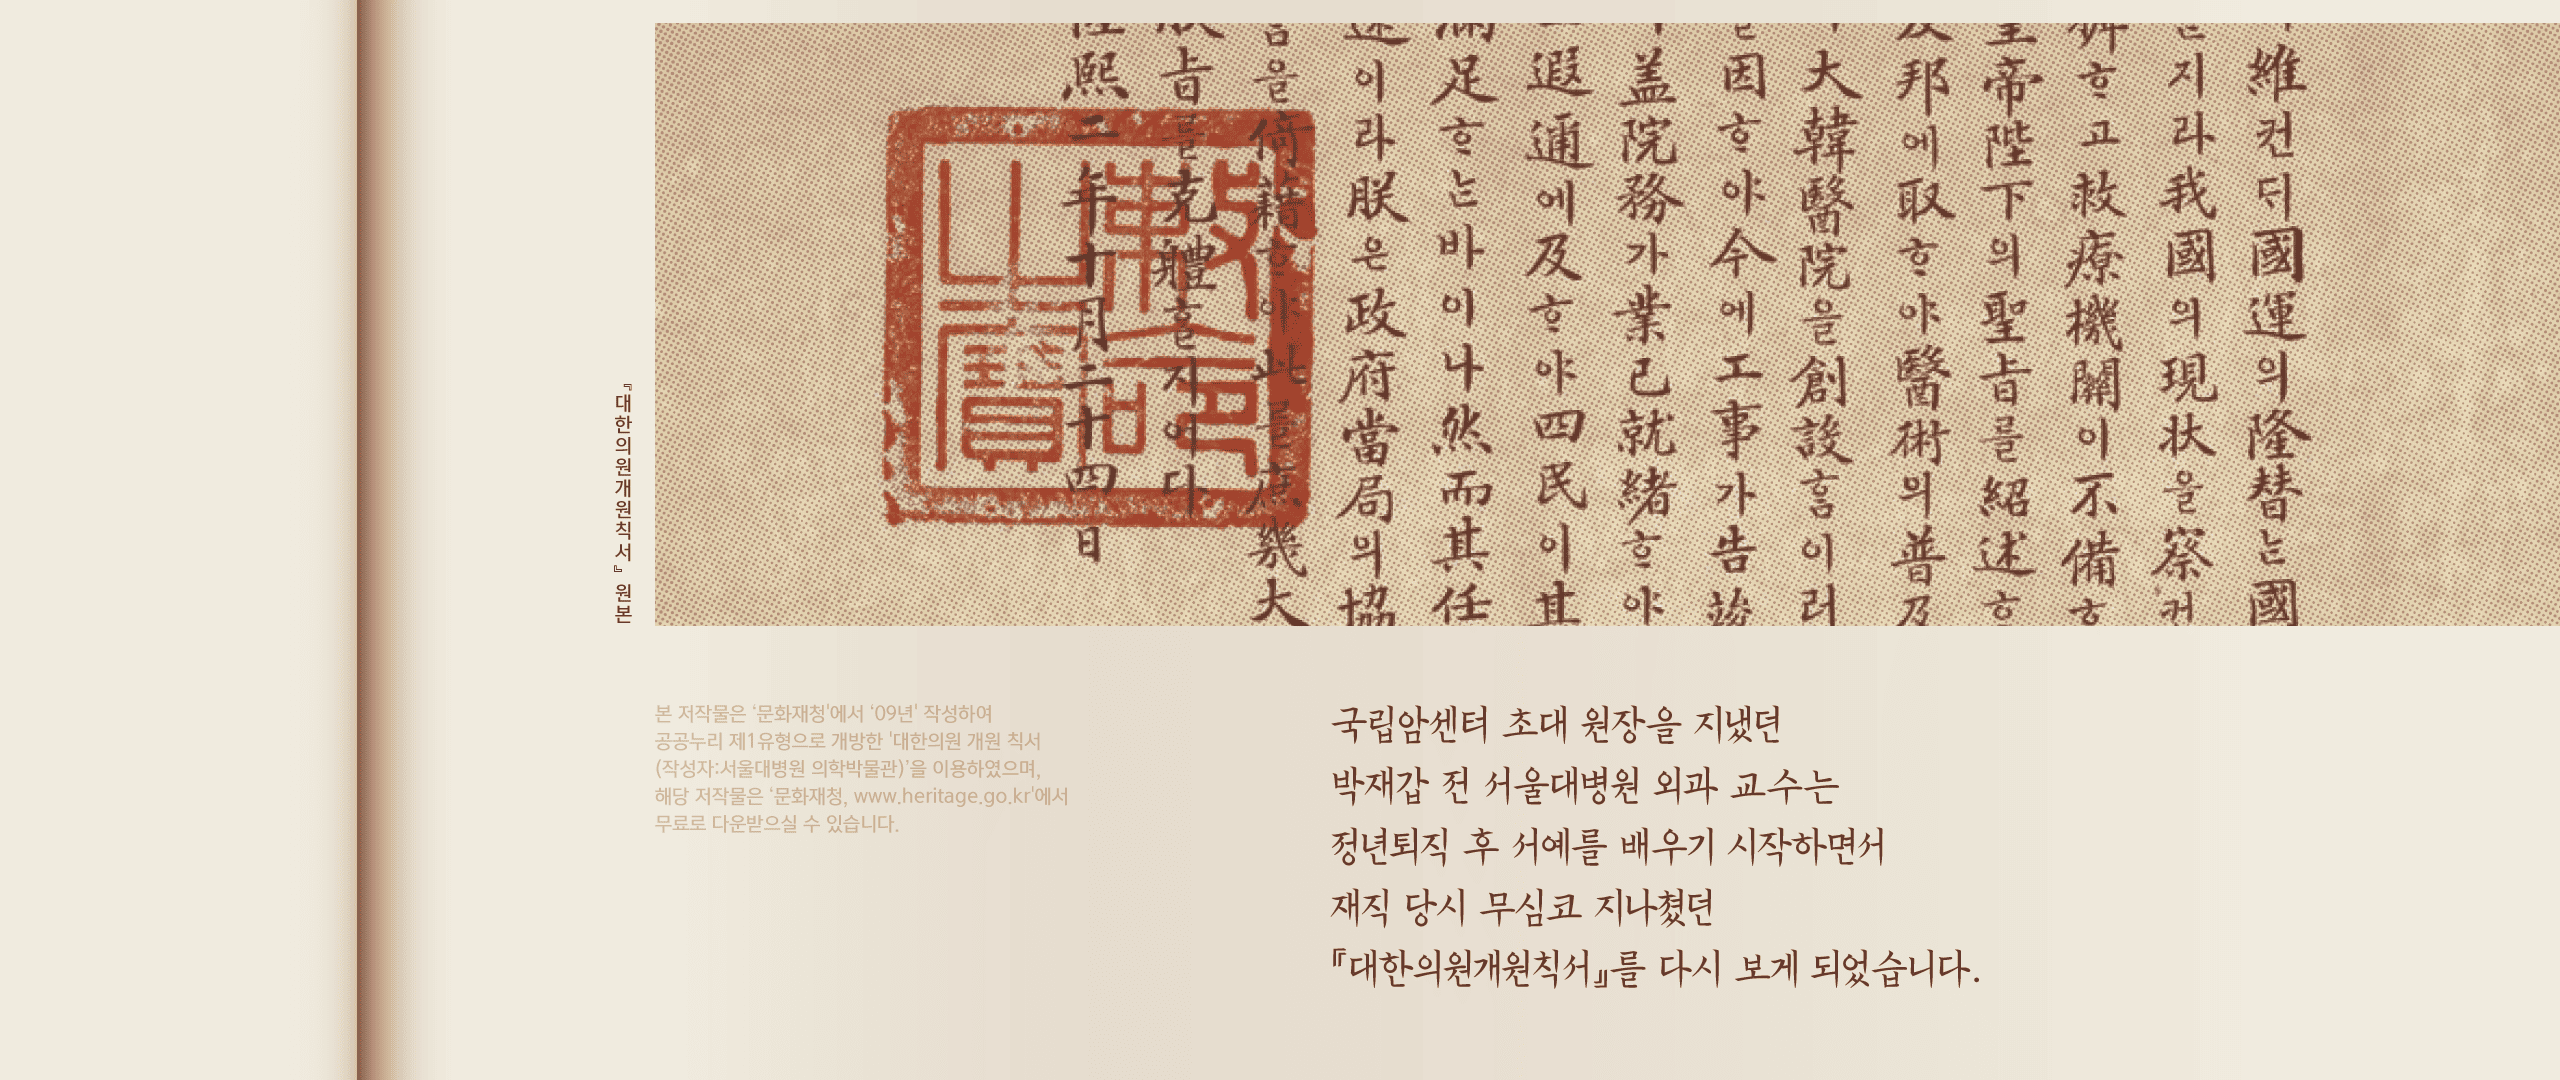 維컨ᄃᆡ國運의隆替ᄂᆞᆫ國
지라我國의現状을察컨
ᄒᆞ고救療機關이不備ᄒᆞ
皇帝陛下의聖旨를紹述ᄒᆞ
友邦에取ᄒᆞ야醫術의普及
大韓醫院을創設ᄒᆞᆷ이러
을因ᄒᆞ야今에工事가告竣
盖院務가業已就緒ᄒᆞ야
遐邇에及ᄒᆞ야四民이其
滿足ᄒᆞᄂᆞᆫ바이나然而其任
述이라朕은政府當局의協
을倚藉ᄒᆞ야此를庶幾大
朕旨를克體ᄒᆞᆯ지어다
隆熙二年十月二十四日
勅命之寶
『대한의원개원칙서』 원본
본 저작물은 ‘문화재청'에서 ‘09년' 작성하여
공공누리 제1유형으로 개방한 '대한의원 개원 칙서
(작성자:서울대병원 의학박물관)’을 이용하였으며,
해당 저작물은 ‘문화재청, www.heritage.go.kr'에서
무료로 다운받으실 수 있습니다.
국립암센터 초대 원장을 지냈던
박재갑 전 서울대병원 외과 교수는
정년퇴직 후 서예를 배우기 시작하면서
재직 당시 무심코 지나쳤던
『대한의원개원칙서』를 다시 보게 되었습니다.